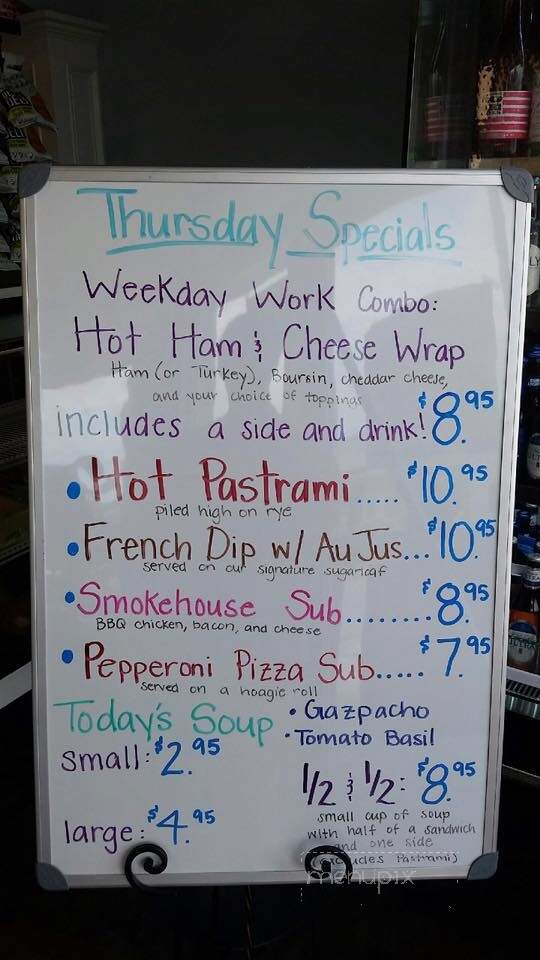 Thursday Specials
Weekday Work Combo:
Hot Ham & Cheese Wrap
Ham (or Turkey), Boursin, cheddar cheese,
and your choice of toppings
includes a side and drink! $8.95
• Hot Pastrami..... $10.95
piled high on rye
• French Dip w/ Au Jus... $10.95
served on our signature sugarloaf
• Smokehouse Sub........ $8.95
BBQ chicken, bacon, and cheese
• Pepperoni Pizza Sub..... $7.95
served on a hoagie roll
Today's Soup
• Gazpacho
• Tomato Basil
small: $2.95
large: $4.95
1/2 & 1/2: $8.95
small cup of soup
with half of a sandwich
and one side
(excludes Pastrami)
menupix